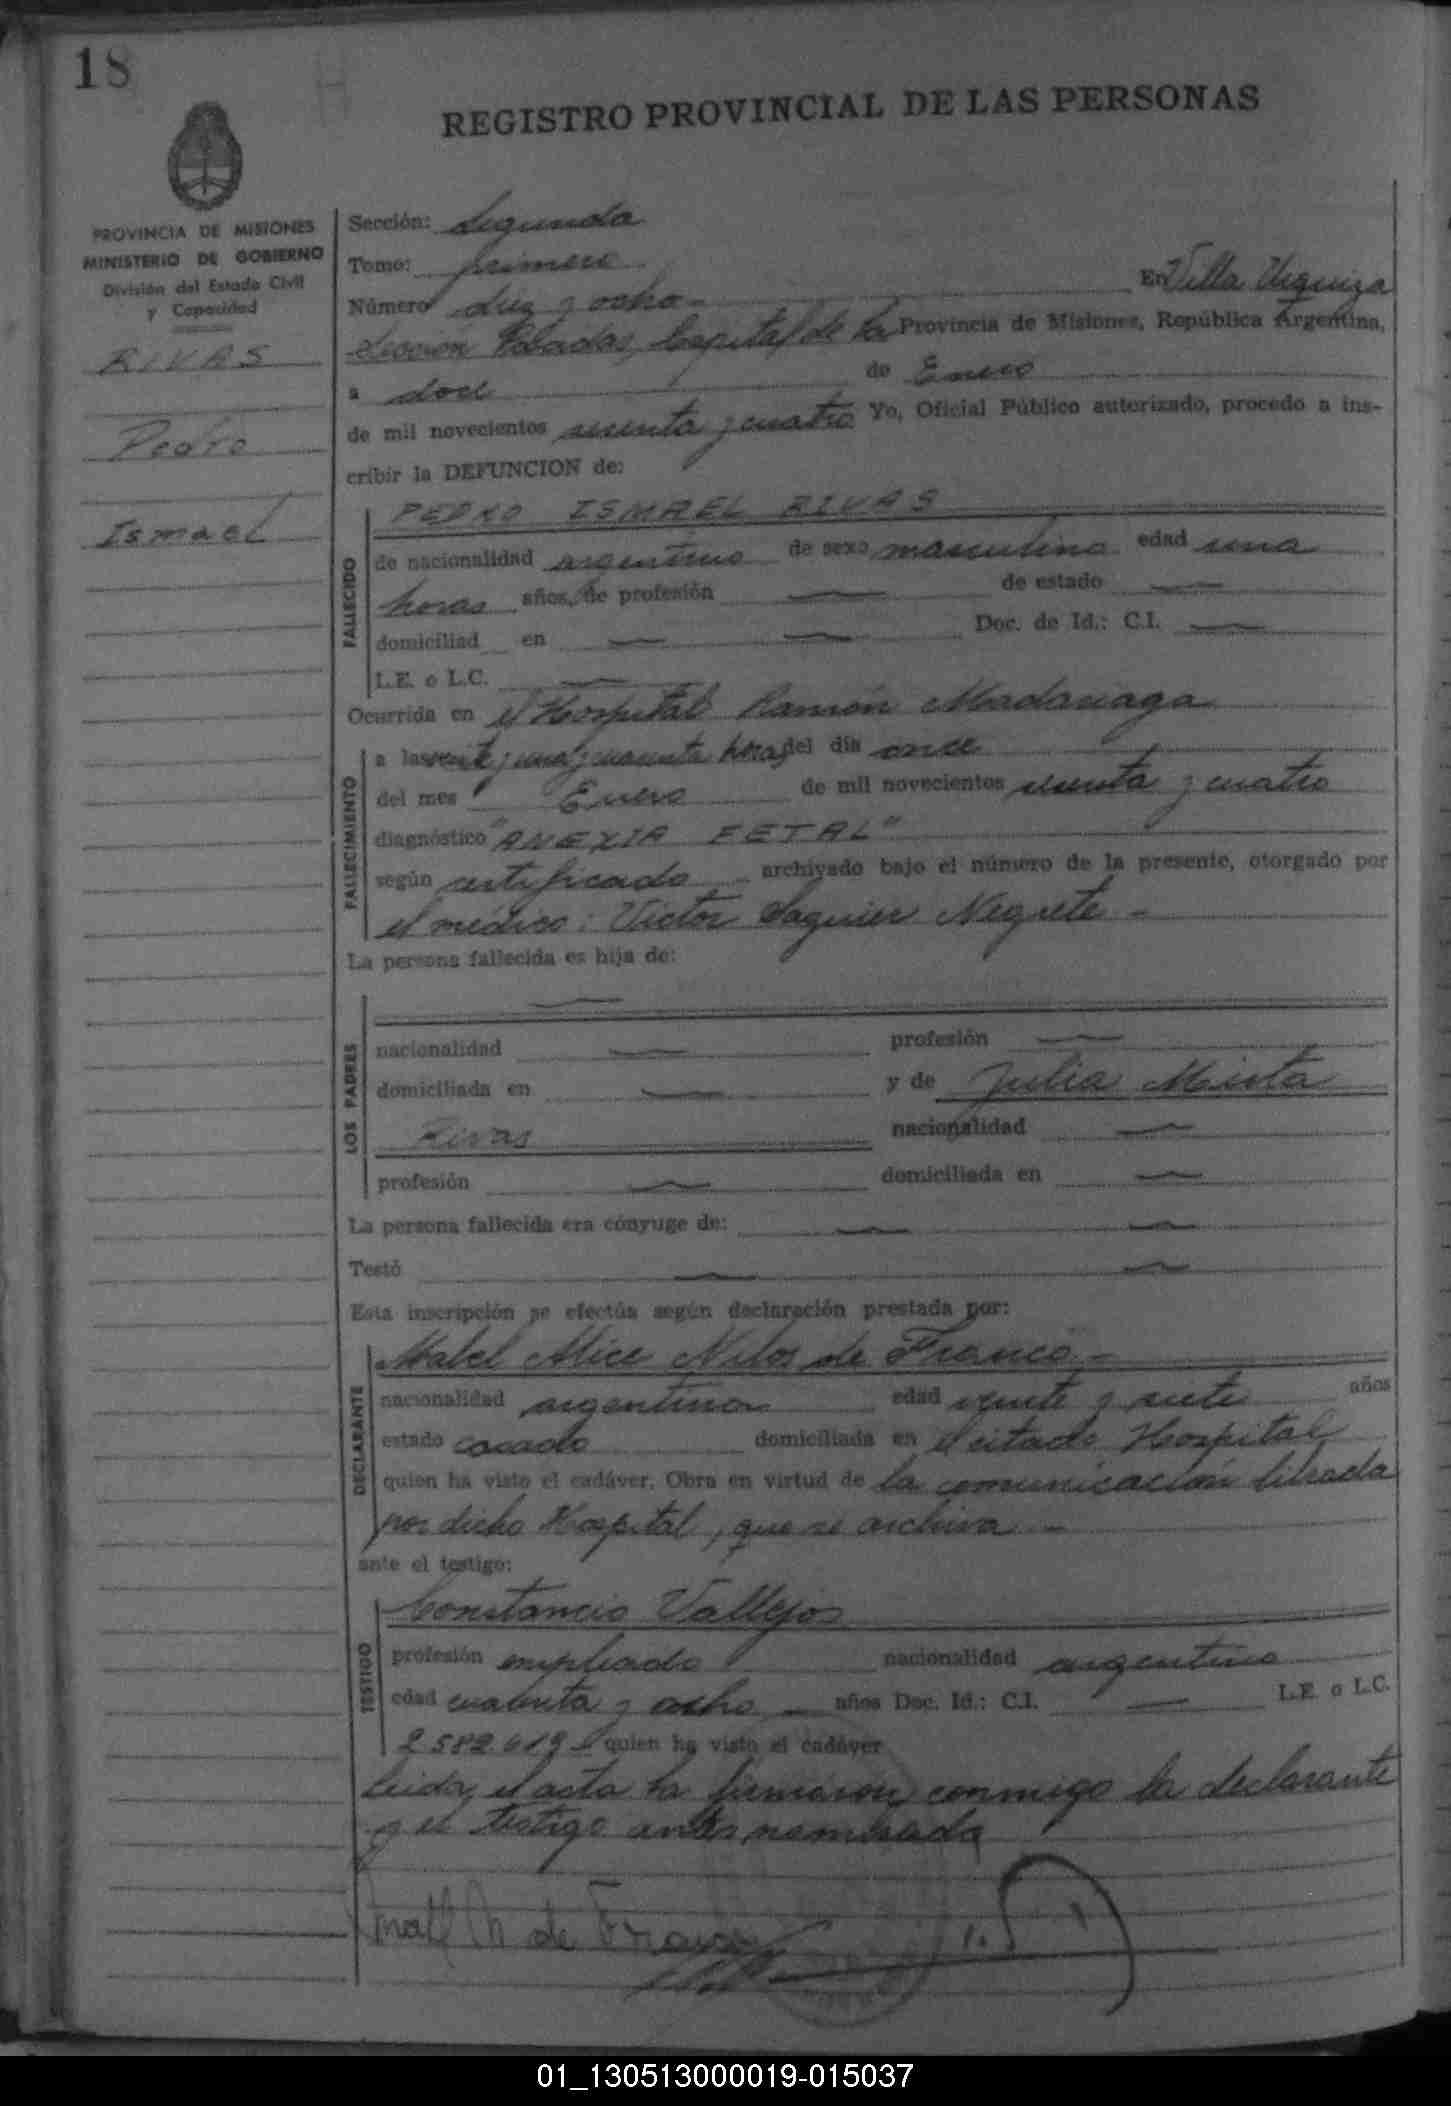 18
REGISTRO PROVINCIAL DE LAS PERSONAS
PROVINCIA DE MISIONES
MINISTERIO DE GOBIERNO
División del Estado Civil
y Capacidad
RIVAS
Pedro
Ismael
Sección: Segunda
Tomo: primero
Número diez y ocho - En Villa Urquiza
Sección Posadas, Capital de la Provincia de Misiones, República Argentina,
a doce de Enero
de mil novecientos sesenta y cuatro Yo, Oficial Público autorizado, procedo a ins-
cribir la DEFUNCION de:
FALLECIDO
PEDRO ISMAEL RIVAS
de nacionalidad argentino de sexo masculino edad una
horas años, de profesión — de estado —
domiciliad en — — Doc. de Id.: C.I. —
L.E. o L.C. —
Ocurrida en el Hospital Ramón Madariaga
FALLECIMIENTO
a las veinte y una y cuarenta horas del día once
del mes Enero de mil novecientos sesenta y cuatro
diagnóstico "ANEXIA FETAL"
según certificado - archivado bajo el número de la presente, otorgado por
el médico: Victor Saguier Negrete -
La persona fallecida es hija de:
LOS PADRES
—
nacionalidad — profesión —
domiciliada en — y de Julia Mirta
Rivas nacionalidad —
profesión — domiciliada en —
La persona fallecida era cónyuge de: — —
Testó — —
Esta inscripción se efectúa según declaración prestada por:
DECLARANTE
Mabel Alice de Franco -
nacionalidad argentina edad veinte y siete años
estado casado domiciliada en el citado Hospital
quien ha visto el cadáver. Obra en virtud de la comunicación librada
por dicho Hospital, que se archiva -
ante el testigo:
TESTIGO
Constancio Vallejos
profesión empleado nacionalidad argentino
edad cuarenta y ocho - años Doc. Id.: C.I. — L.E. o L.C.
2.582.619 - quien ha visto el cadáver
Leida, el acta la firmaron conmigo la declarante
y el testigo antes nombrado
de Franco
01_130513000019-015037